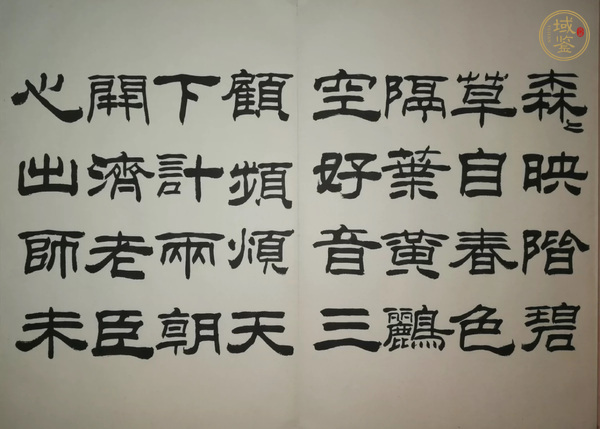 森〻映階碧
草自春色
隔葉黃鸝
空好音三
顧頻煩天
下計兩朝
開濟老臣
心出師未
域鉴